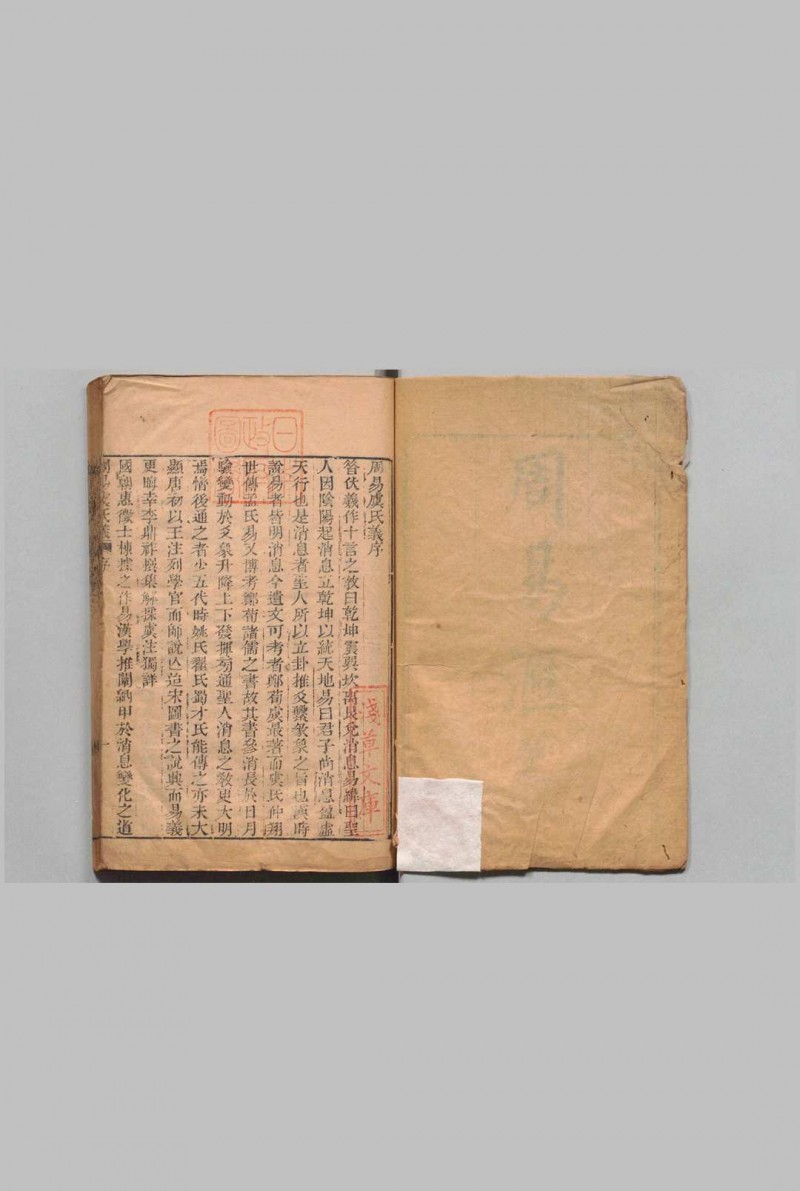 周易虞氏義序
昔伏羲作十言之敎曰乾坤震巽坎离艮兌消息易緯曰聖
人因陰陽起消息立乾坤以統天地易曰君子尚消息盈虛
天行也是消息者聖人所以立卦推爻繫彖象之旨也漢時
說易者皆明消息今遺文可考者鄭荀虞最著而虞氏仲翔
世傳孟氏易又博考鄭荀諸儒之書故其書參消長於日月
驗變動於爻象升降上下發揮旁通聖人消息之敎更大明
焉惜後通之者少五代時姚氏翟氏蜀才氏能傳之亦未大
顯唐初以王注列學官而師說亡迨宋圖書之說興而易義
更晦幸李鼎祚撰集解採虞注獨詳
國朝惠徵士棟據之作易漢學推闡納甲於消息變化之道
周易虞氏義 序
一
淺草文庫
周易